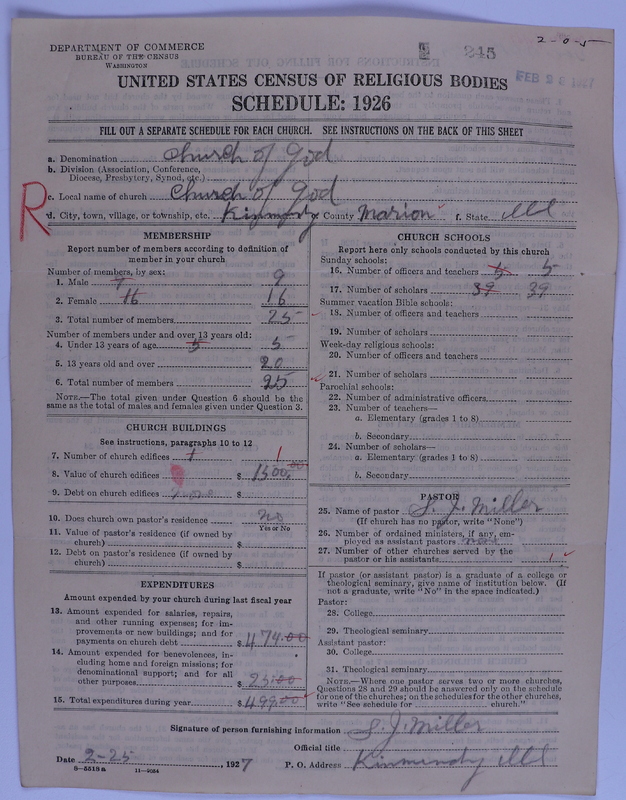 2-0-5
245
FEB 28 1927
DEPARTMENT OF COMMERCE
BUREAU OF THE CENSUS
WASHINGTON
UNITED STATES CENSUS OF RELIGIOUS BODIES
SCHEDULE: 1926
FILL OUT A SEPARATE SCHEDULE FOR EACH CHURCH. SEE INSTRUCTIONS ON THE BACK OF THIS SHEET
a. Denomination Church of God
b. Division (Association, Conference,
Diocese, Presbytery, Synod, etc.)
R
c. Local name of church Church of God
d. City, town, village, or township, etc. Kinmundy County Marion f. State Ill
MEMBERSHIP
Report number of members according to definition of
member in your church
Number of members, by sex:
1. Male 9 9
2. Female 16 16
3. Total number of members 25
Number of members under and over 13 years old:
4. Under 13 years of age 5 5
5. 13 years old and over 20
6. Total number of members 25
NOTE.—The total given under Question 6 should be
same as the total of males and females given under Question 3.
CHURCH BUILDINGS
See instructions, paragraphs 10 to 12
7. Number of church edifices 1 1
8. Value of church edifices $ 1500.00
9. Debt on church edifices $
10. Does church own pastor's residence no
Yes or No
11. Value of pastor's residence (if owned by
church) $
12. Debt on pastor's residence (if owned by
church) $
EXPENDITURES
Amount expended by your church during last fiscal year
13. Amount expended for salaries, repairs,
and other running expenses; for im-
provements or new buildings; and for
payments on church debt $ 474.00
14. Amount expended for benevolences, in-
cluding home and foreign missions; for
denominational support; and for all
other purposes $ 25.00
15. Total expenditures during year $ 499.00
CHURCH SCHOOLS
Report here only schools conducted by this church
Sunday schools:
16. Number of officers and teachers 5 5
17. Number of scholars 39 39
Summer vacation Bible schools:
18. Number of officers and teachers
19. Number of scholars
Week-day religious schools:
20. Number of officers and teachers
21. Number of scholars
Parochial schools:
22. Number of administrative officers
23. Number of teachers—
a. Elementary (grades 1 to 8)
b. Secondary
24. Number of scholars—
a. Elementary (grades 1 to 8)
b. Secondary
PASTOR
25. Name of pastor S. J. Miller
(If church has no pastor, write "None")
26. Number of ordained ministers, if any, em-
ployed as assistant pastors
27. Number of other churches served by the
pastor or his assistants 1
If pastor (or assistant pastor) is a graduate of a college or
theological seminary, give name of institution below. (If
not a graduate, write "No" in the space indicated.)
Pastor:
28. College
29. Theological seminary
Assistant pastor:
30. College
31. Theological seminary
NOTE.—Where one pastor serves two or more churches,
Questions 28 and 29 should be answered only on the schedule
for one of the churches; on the schedules for the other churches,
write "See schedule for church."
Signature of person furnishing information S. J. Miller
Official title
Date 2-25, 1927 P. O. Address Kinmundy Ill
8—5518a 11—9034